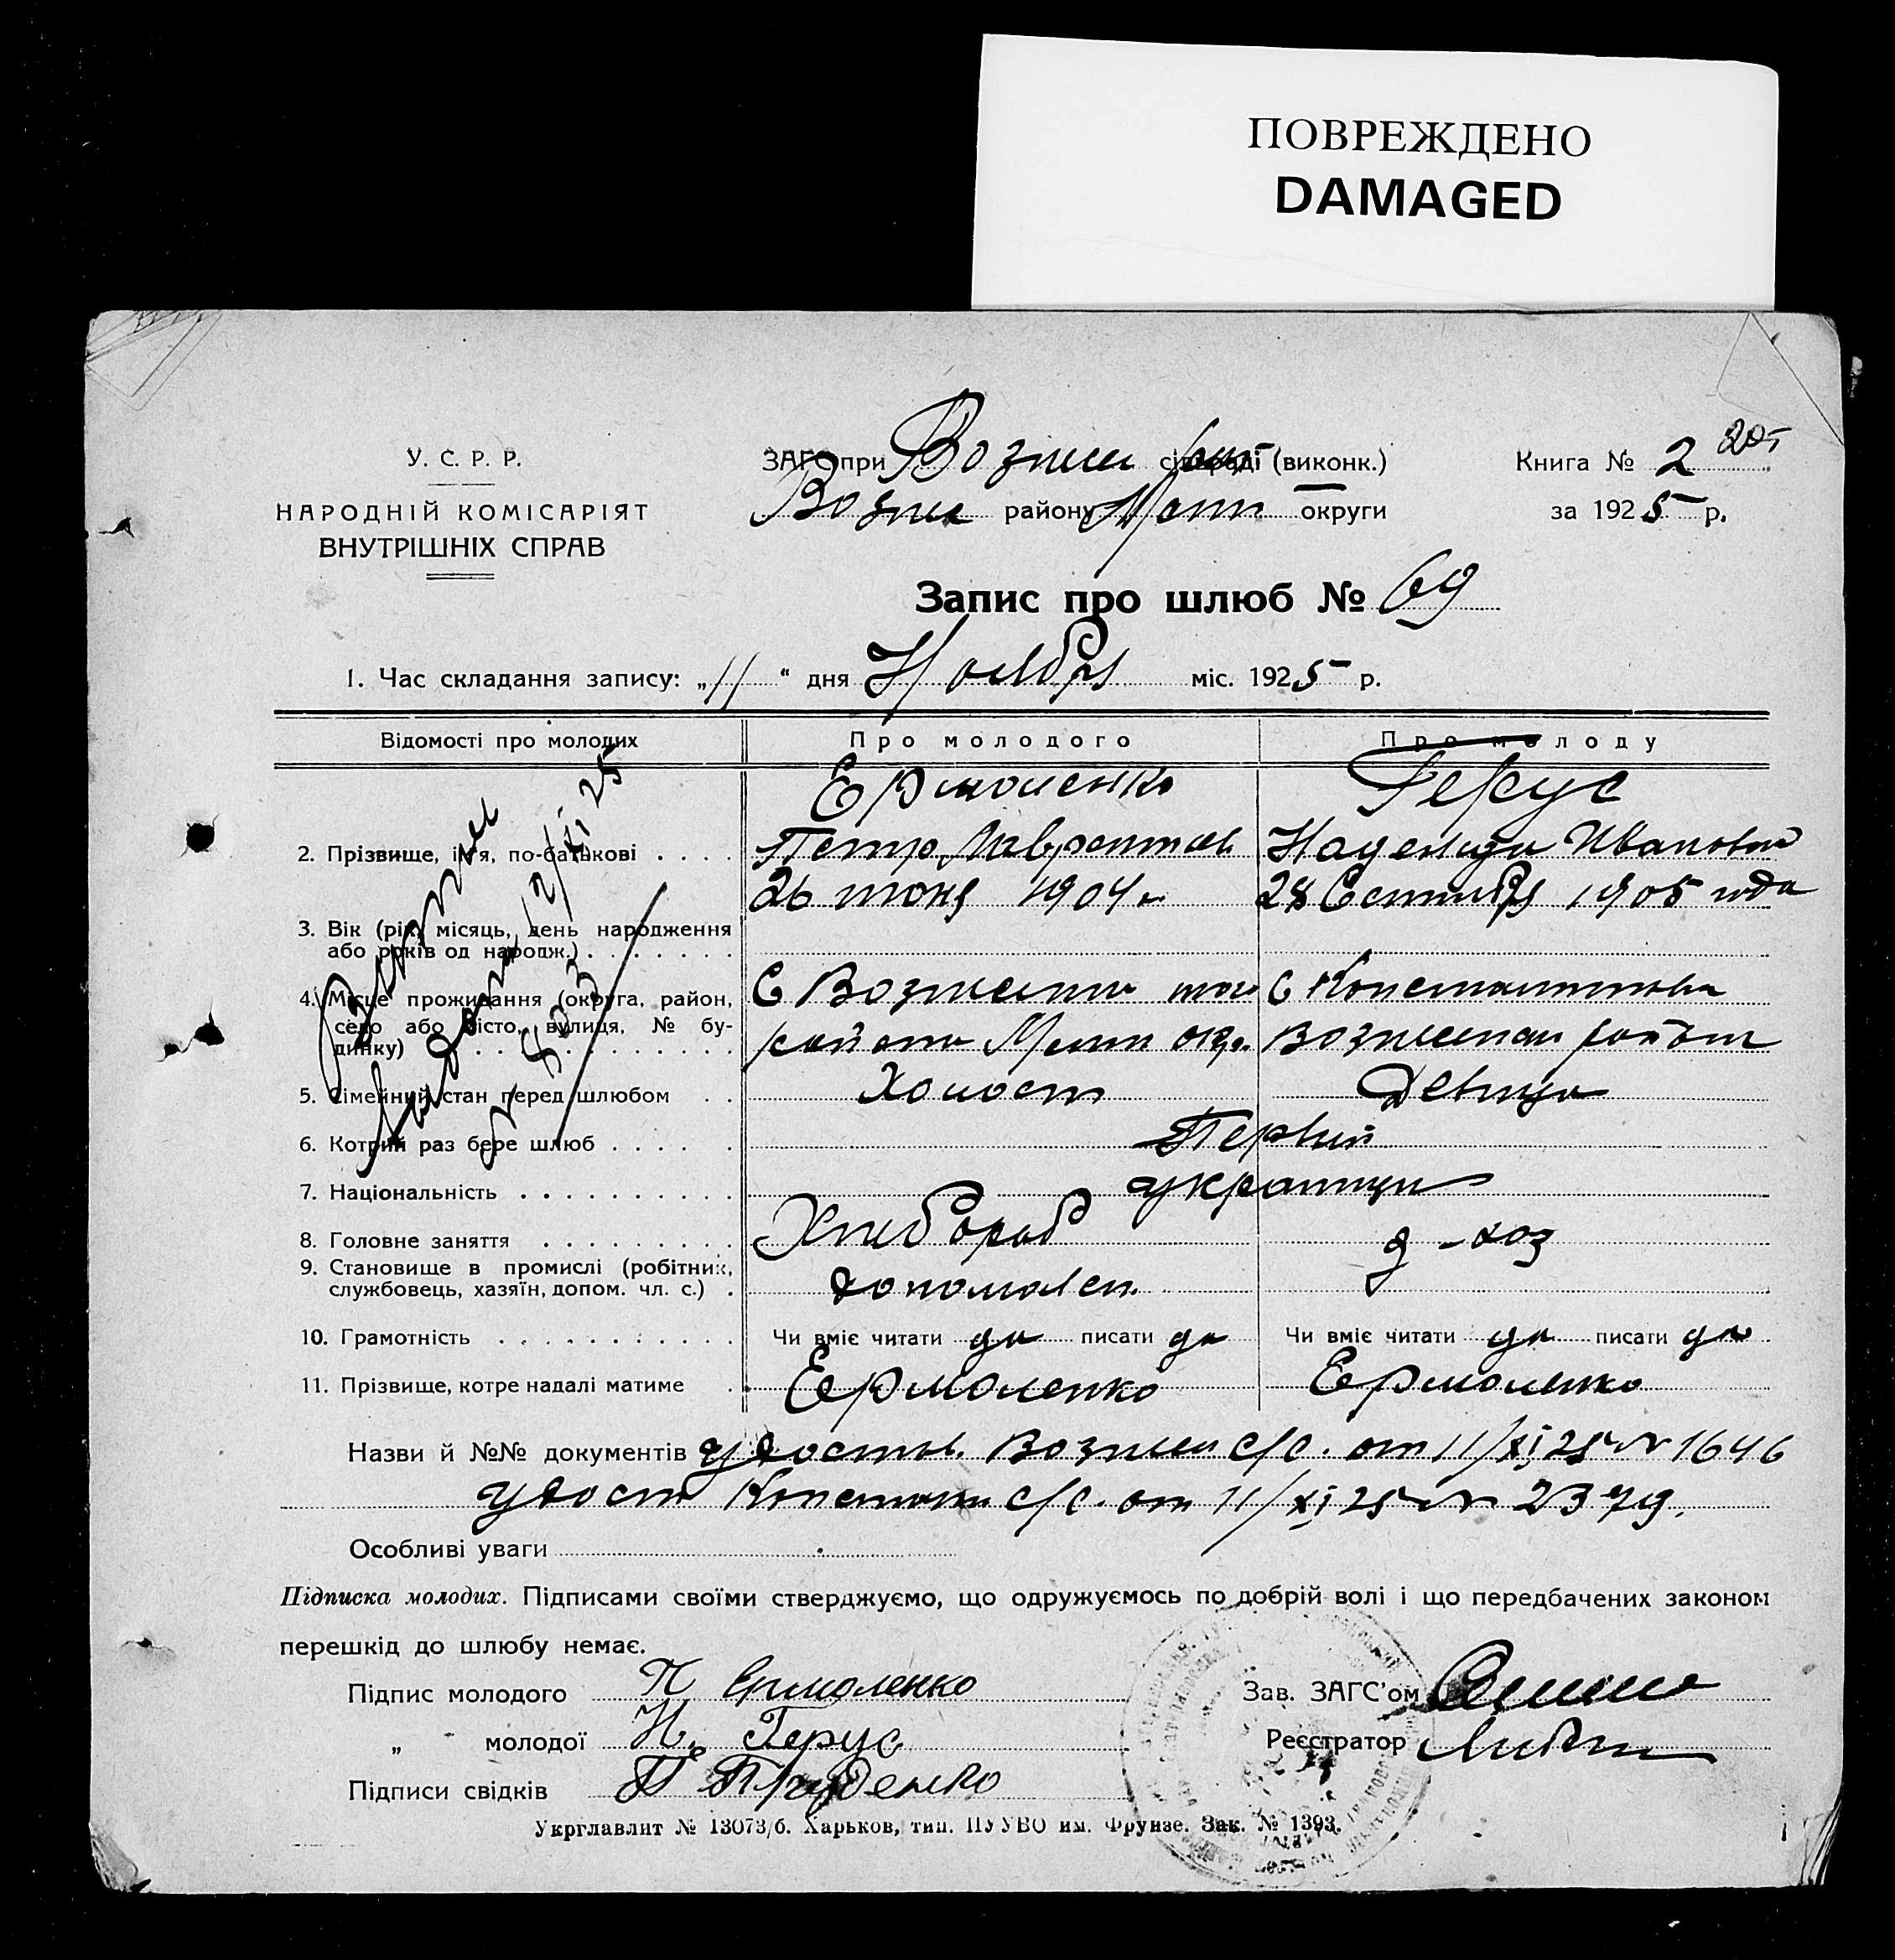 ПОВРЕЖДЕНО
DAMAGED
У. С. Р. Р.
НАРОДНІЙ КОМІСАРІЯТ
ВНУТРІШНІХ СПРАВ
ЗАГС при Вознес (виконк.)
Вознес району Мелит округи
Книга № 2
за 1925 р.
Запис про шлюб № 69
1. Час складання запису: „11“ дня Ноября міс. 1925 р.
Відомості про молодих Про молодого Про молоду
Ермоленко Герус
2. Прізвище, ім'я, по-батькові . . . . Петр Лаврентьев Надежда Ивановна
26 июня 1904 г. 28 Сентября 1905 года
3. Вік (рік, місяць, день народження
або років од народж.) . . . . . . .
4. Місце проживання (округа, район, С Вознесенка того С Константиновка
село або місто, вулиця, № бу-
динку) . . . . . . . . района Мелит окр. Вознесенского района
5. Сімейний стан перед шлюбом . . Холост Девица
6. Котрий раз бере шлюб . . . . . Первий
7. Національність . . . . . . . . . . украинцы
8. Головне заняття . . . . . . . . . Хлибороб д-хоз
9. Становище в промислі (робітник,
службовець, хазяїн, допом. чл. с.) .
10. Грамотність . . . . . . . . . . . Чи вміє читати да писати да Чи вміє читати да писати да
11. Прізвище, котре надалі матиме . . Ермоленко Ермоленко
Назви й №№ документів удостов. Вознесен с/с. от 11/XI 25 г № 1646
удост Констант с/с. от 11/XI 25 г № 2379.
Особливі уваги
Підписка молодих. Підписами своїми стверджуємо, що одружуємось по добрій волі і що передбачених законом
перешкід до шлюбу немає.
Підпис молодого П Ермоленко
Зав. ЗАГС'ом
„ молодої Н. Герус
Реєстратор
Підписи свідків
Укрглавлит № 13073/б. Харьков, тип. ПУУВО им. Фрунзе. Зак. № 1393.